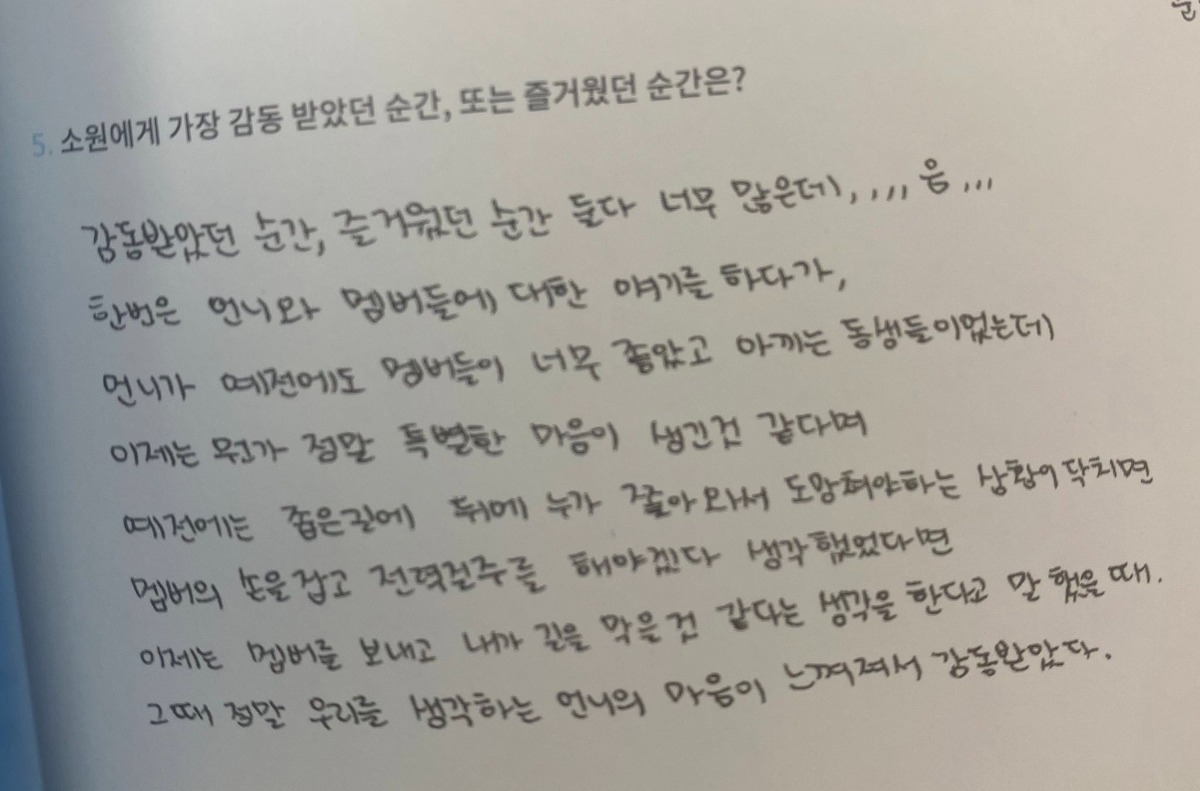 5. 소원에게 가장 감동 받았던 순간, 또는 즐거웠던 순간은?
감동받았던 순간, 즐거웠던 순간 둘다 너무 많은데,,,, 음...
한번은 언니와 멤버들에 대한 얘기를 하다가,
언니가 예전에도 멤버들이 너무 좋았고 아끼는 동생들이었는데
이제는 뭔가 정말 특별한 마음이 생긴것 같다며
예전에는 좁은길에 뒤에 누가 쫓아와서 도망쳐야하는 상황이 닥치면
멤버의 손을 잡고 전력질주를 해야겠다 생각했었다면
이제는 멤버를 보내고 내가 길을 막을것 같다는 생각을 한다고 말 했을 때.
그때 정말 우리를 생각하는 언니의 마음이 느껴져서 감동받았다.